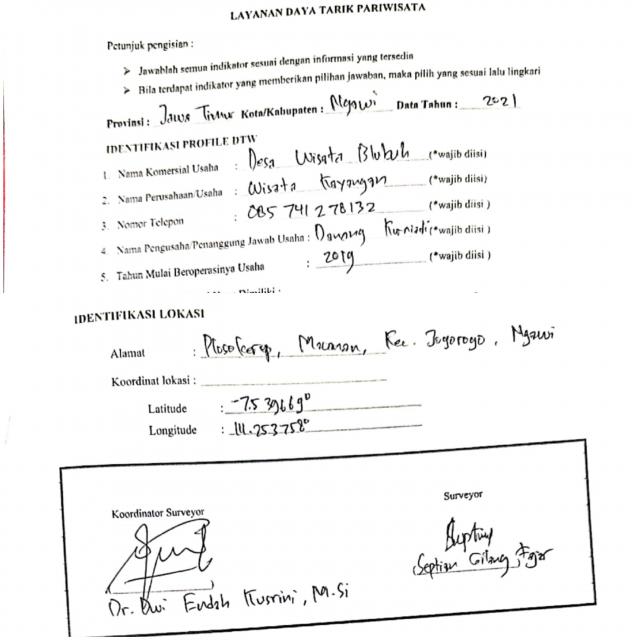 LAYANAN DAYA TARIK PARIWISATA
Petunjuk pengisian :
➢ Jawablah semua indikator sesuai dengan informasi yang tersedia
➢ Bila terdapat indikator yang memberikan pilihan jawaban, maka pilih yang sesuai lalu lingkari
Provinsi : Jawa Timur Kota/Kabupaten : Ngawi Data Tahun : 2021
IDENTIFIKASI PROFILE DTW
1. Nama Komersial Usaha : Desa Wisata Blubuh (*wajib diisi)
2. Nama Perusahaan/Usaha : Wisata Kayangan (*wajib diisi)
3. Nomor Telepon : 085 741 278132 (*wajib diisi )
4. Nama Pengusaha/Penanggung Jawab Usaha : Danang Kurniadi (*wajib diisi )
5. Tahun Mulai Beroperasinya Usaha : 2019 (*wajib diisi )
IDENTIFIKASI LOKASI
Alamat : Plosolerep, Macanan, Kec. Jogorogo, Ngawi
Koordinat lokasi :
Latitude : -7.539669°
Longitude : 111.253758°
Koordinator Surveyor
Surveyor
Septian
Septian Gilang Fajar
Dr. Dwi Endah Kusrini, M.Si